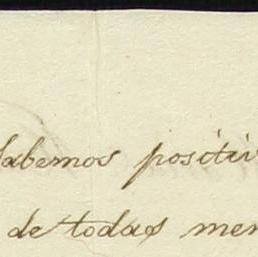 Sabemos positiv
de todas mer